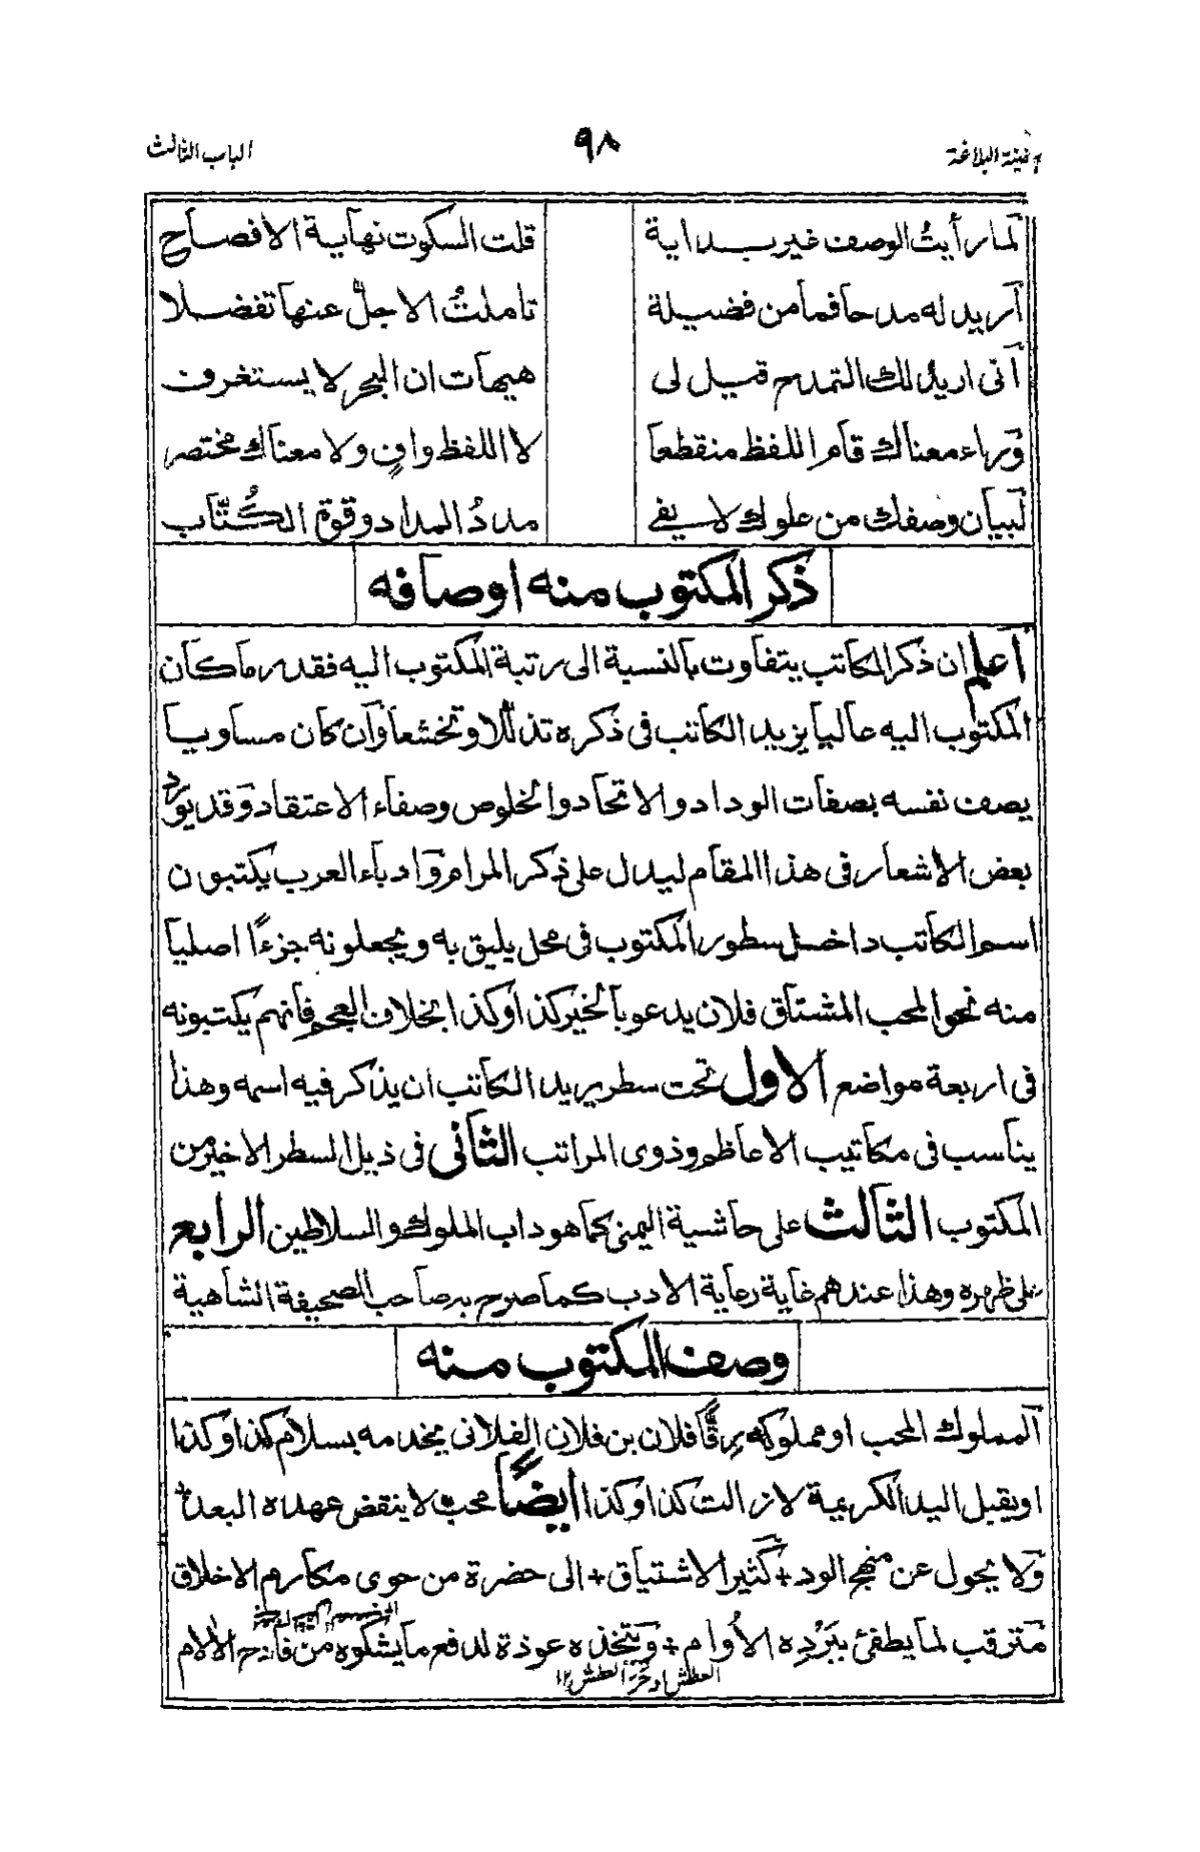 سفينة البلاغة ٩٨ الباب الثالث
لما رأيتُ الوصف غير بداية قلت السكوت نهاية الافصاح
اريد له مدحا فما من فضيلة تاملتُ الا جلّ عنها تفضلا
انى اريد لك التمدح قيل لى هيهات ان البحر لا يستغرف
وراء معناك قام اللفظ منقطعا لا اللفظ وافٍ ولا معناك مختصر
لبيان وصفك من علوك لا يفى مددُ المداد وقوة الكُتّاب
ذكر المكتوب منه اوصافه
اعلم ان ذكر الكاتب يتفاوت بالنسبة الى رتبة المكتوب اليه فقدر ما كان
المكتوب اليه عاليا يزيد الكاتب فى ذكره تذللا وتخشعا وان كان مساويا
يصف نفسه بصفات الوداد والاتحاد والخلوص وصفاء الاعتقاد وقد يورد
بعض الاشعار فى هذا المقام ليدل على ذكر المرام وادباء العرب يكتبون
اسم الكاتب داخل سطور المكتوب فى محل يليق به ويجعلونه جزءًا اصليا
منه نحو المحب المشتاق فلان يدعو بالخير كذا وكذا بخلاف العجم فانهم يكتبونه
فى اربعة مواضع الاول تحت سطر يريد الكاتب ان يذكر فيه اسمه وهذا
يناسب فى مكاتيب الاعاظم وذوى المراتب الثانى فى ذيل السطر الاخير من
المكتوب الثالث على حاشية اليمنى كما هو داب الملوك والسلاطين الرابع
على ظهره وهذا عندهم غاية رعاية الادب كما صرح به صاحب الصحيفة الشاهية
وصف المكتوب منه
المملوك المحب او مملوكه رِقًّا فلان بن فلان الفلانى يخدمه بسلام كذا وكذا
او يقبل اليد الكريمة لا زالت كذا وكذا ايضاً محب لا ينقض عهده البعد +
ولا يحول عن منهج الود + كثير الاشتياق + الى حضرة من حوى مكارم الاخلاق
مترقب لما يطفئ بِبَرْدِه الأُوام + ويتخذه عوذة لدفع ما يشكوه من فادح الالام
العطش او حَرّ العطش ١٢